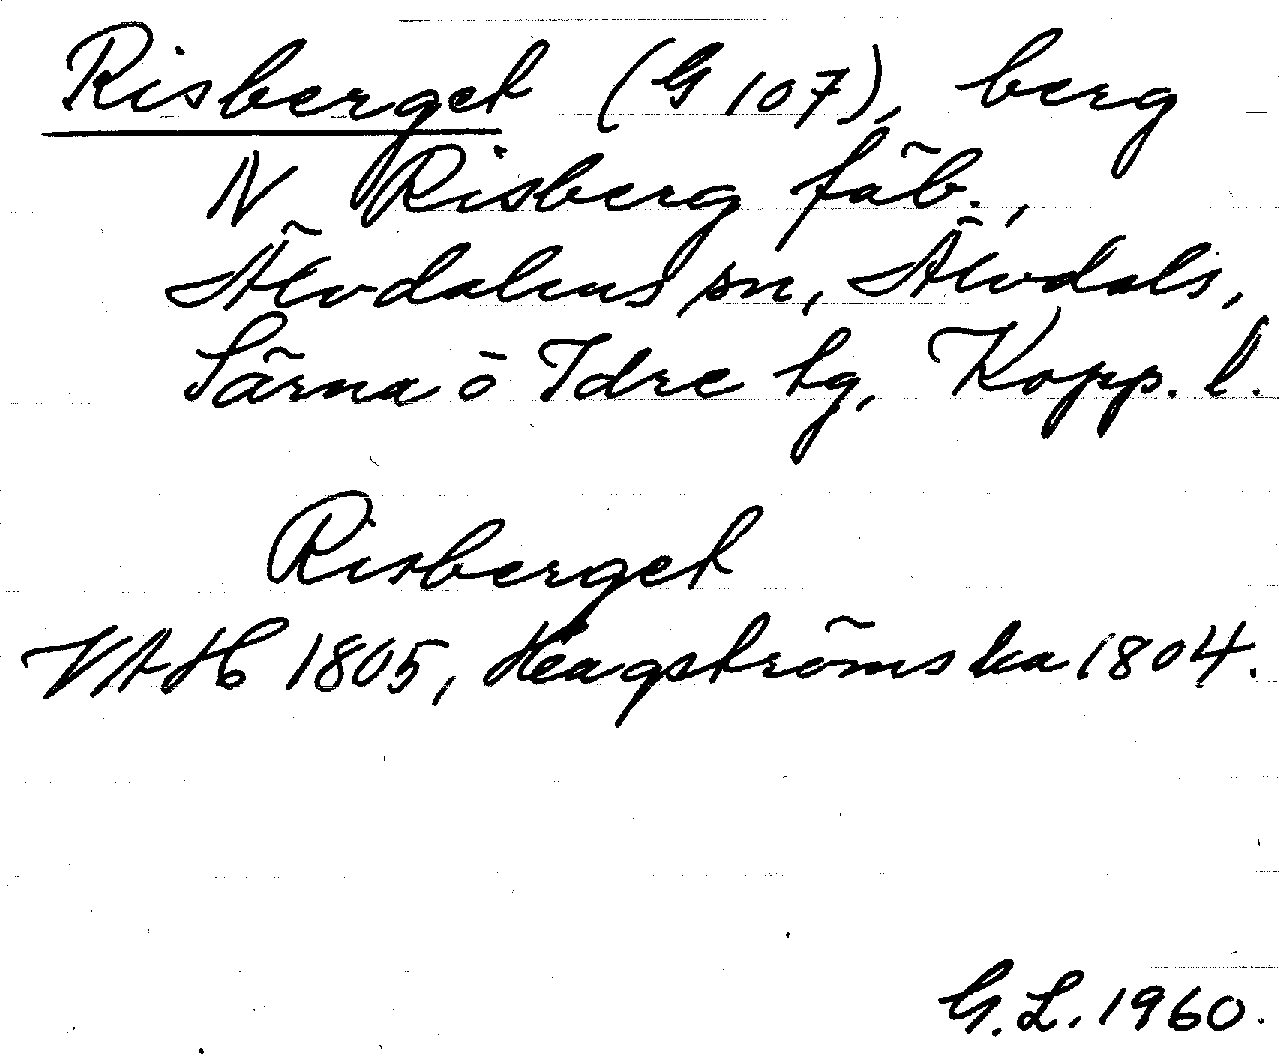 Risberget (G 107), berg
N Risberg fäb.,
Älvdalens sn, Älvdals,
Särna o Idre tg, Kopp. l.
Risberget
VAH 1805, Haagströmska 1804.
G.L. 1960.